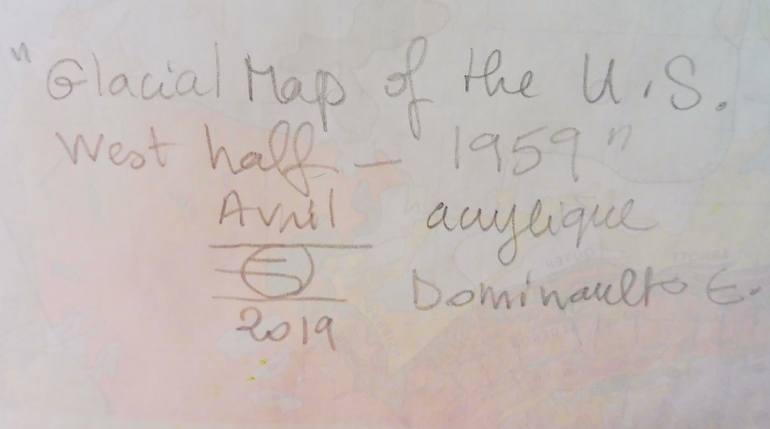 "Glacial Map of the U.S.
West half – 1959"
Avril acrylique
Dominault E.
2019